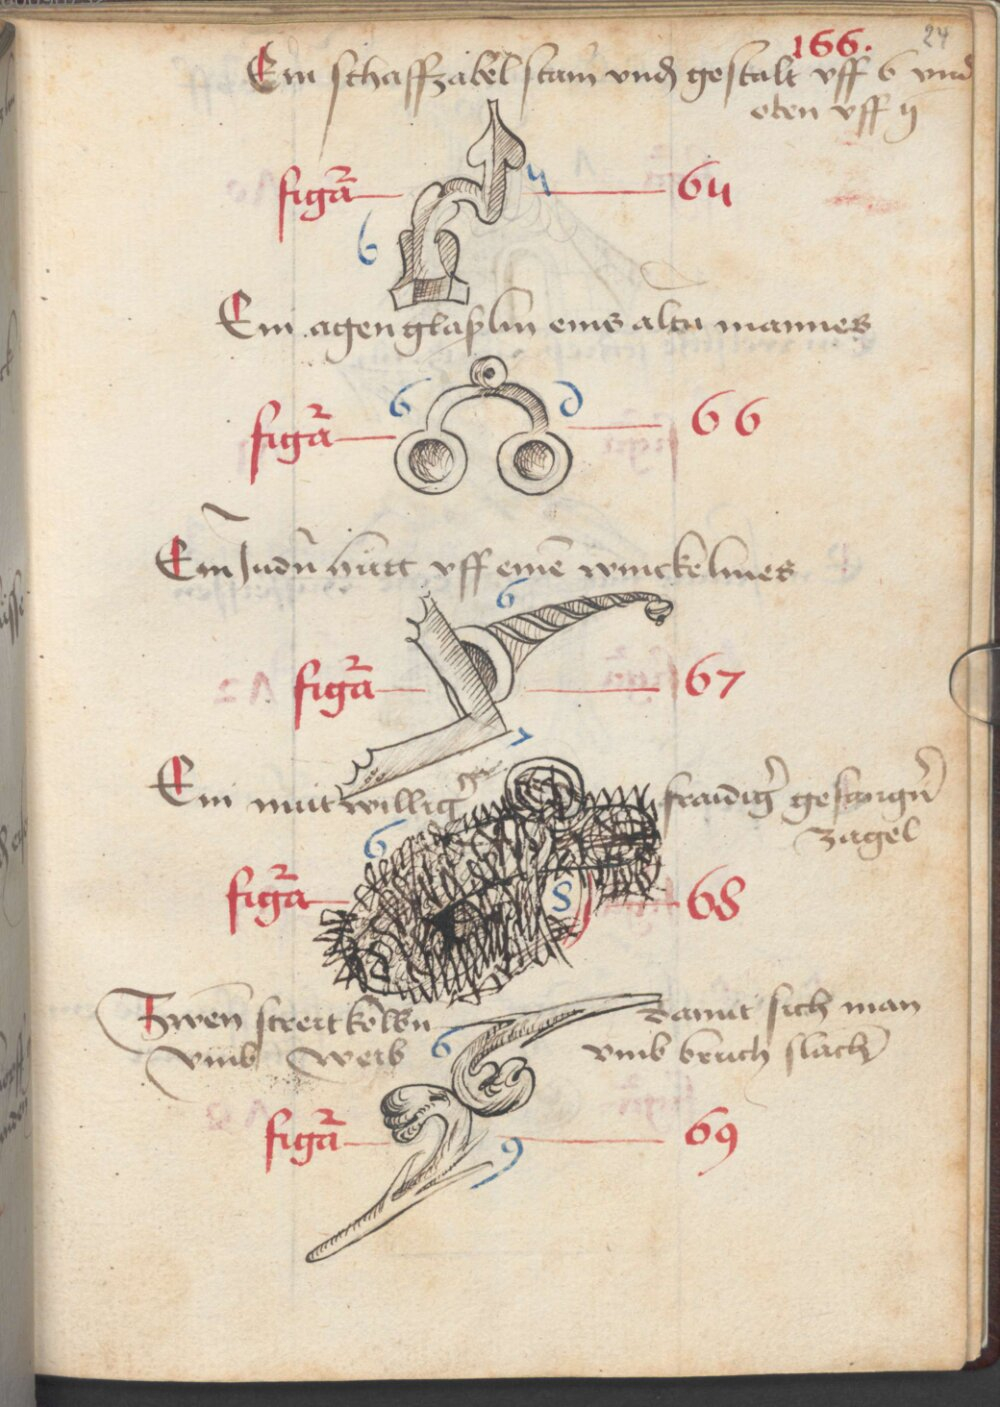 166.
24
Ein schaffzabel stam vnd gestalt vff 6 vnd
oben vff ij
figa 4 64
6
Ein agen glaslin eins altn mannes
6 0
figa 66
Ein Judn hutt vff eine winckelmes
6
figa 67
7
Ein mutwillig fraudig gefangn
zagel
6
figa 8 68
Zwen streitkolbn damit sich man
vmb weib 6 vmb bruch slach
figa 9 69